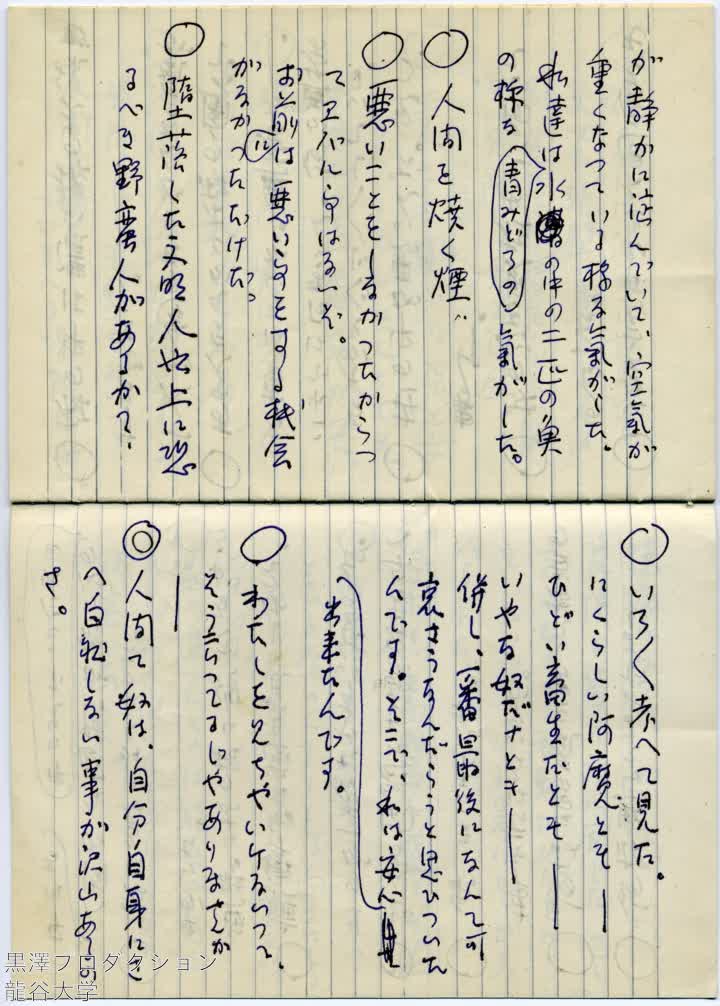 が静かに淀んでいて、空氣が
重くなつている様な氣がした。
私達は水の中の二匹の魚
の様な青みどろの氣がした。
○人間を焼く煙〃
○悪いことをしなかつたからつ
てエバルのはるいぞ。
お前は悪い事をする機会
がなかつただけだ。
に
○堕落した文明人以上に恐
るべき野蛮人があるかて、
○いろ〱考へて見た。
にくらしい阿魔とも――
ひどい畜生だとも――
いやな奴だナとも――
併し、一番最後になんて可
哀さうなんだらうと思ひついた
んです。そこで、私は安心
出来たんです。
○わたしを見ちやいけないつて、
そう云つてるじやありませんか
――
◎人間て奴は、自分自身にさ
へ白状しない事が沢山あるの
さ。
黒澤プロダクション
龍谷大学